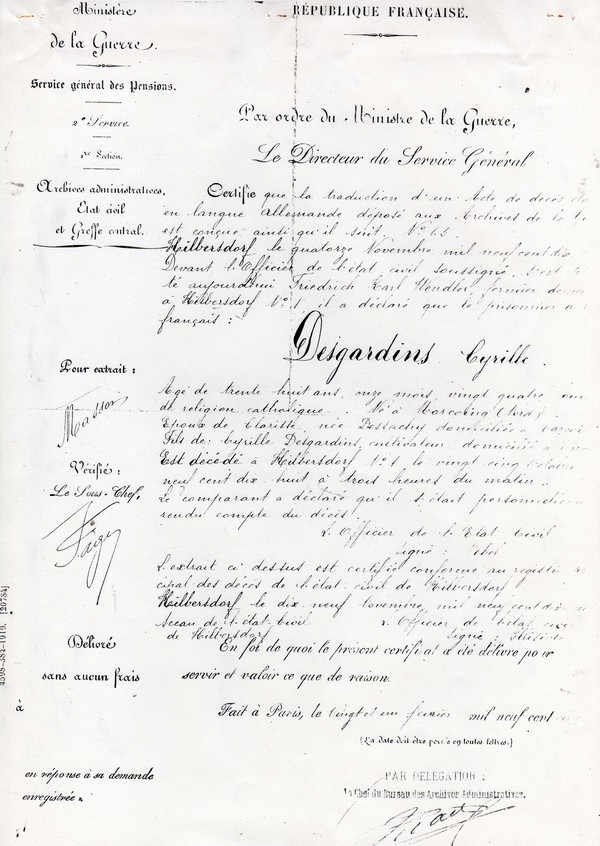 Ministère
de la Guerre.
Service général des Pensions.
2e Service.
1re Section.
Archives administratives,
Etat civil
et Greffe central.
RÉPUBLIQUE FRANÇAISE.
Par ordre du Ministre de la Guerre,
Le Directeur du Service Général
Certifie que la traduction d'un Acte de décès
en langue Allemande déposé aux Archives de la
est conçue ainsi qu'il suit. No 65
Hilbersdorf, le quatorze Novembre mil neuf cent dix
Devant l'Officier de l'état civil soussigné s'est
té aujourdhui Friedrich Karl Hendler, fermier
à Hilbersdorf No 1, il a déclaré que le prisonnier
français :
Desgardins Cyrille.
Pour extrait :
Masson
Agé de trente huit ans, onze mois, vingt quatre
de religion catholique. Né à Marcoing (Nord).
Epoux de Clarisse, née Dessachy domiciliée à
Fils de Cyrille Desgardins, cultivateur, domicilié à
Est décédé à Hilbersdorf No 1, le vingt cinq Octobre
neuf cent dix huit à trois heures du matin.
Le comparant a déclaré qu'il s'était
rendu compte du décès.
L'Officier de l'Etat Civil
signé :
Vérifié :
Le Sous-Chef,
L'extrait ci dessus est certifié conforme au
cipal des décès de l'état-civil de Hilbersdorf
Hilbersdorf le dix neuf Novembre mil neuf cent dix
Sceau de l'état-civil L'Officier de l'état
de Hilbersdorf Signé :
En foi de quoi le présent certificat a été délivré pour
servir et valoir ce que de raison.
Délivré
sans aucun frais
à
Fait à Paris, le vingt et un février mil neuf cent
(La date doit être portée en toutes lettres.)
en réponse à sa demande
enregistrée
PAR DÉLÉGATION :
Le Chef du Bureau des Archives Administratives.
4598-384-1919. [20784]